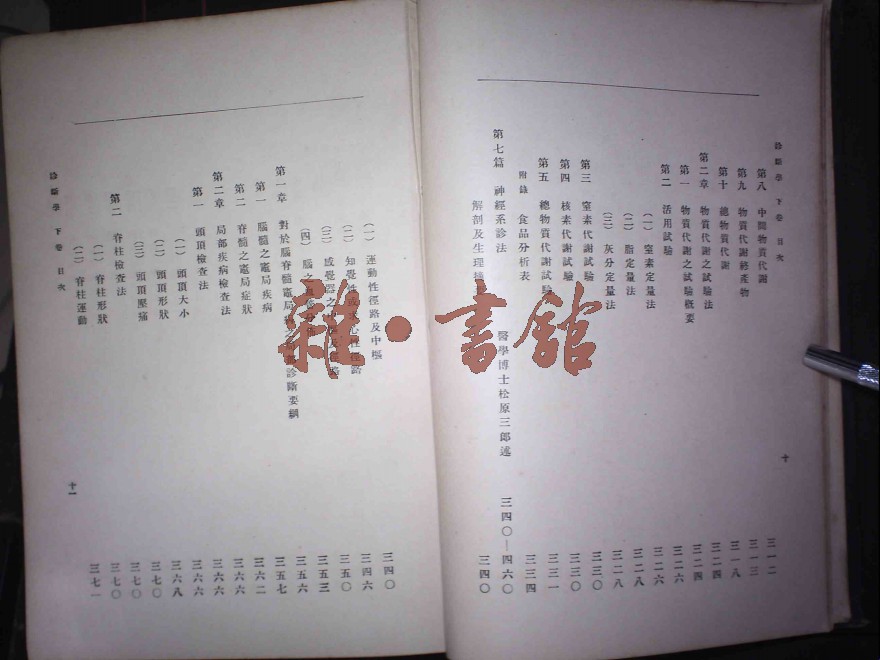 診斷學 下卷 目次
第八 中間物質代謝 三一二
第九 物質代謝終產物 三一三
第十 總物質代謝 三一八
第二章 物質代謝之試驗法 三二四
第一 物質代謝之試驗概要 三二四
第二 活用試驗 三二六
(一) 窒素定量法 三二六
(二) 脂定量法 三二八
(三) 灰分定量法 三二八
第三 窒素代謝試驗 三三〇
第四 核素代謝試驗 三三〇
第五 總物質代謝試驗 三三一
附錄 食品分析表 三三四
第七篇 神經系診法 醫學博士松原三郎述 三四〇—四六〇
解剖及生理 三四〇
十
(一) 運動性徑路及中樞 三四〇
(二) 知覺性 心性徑路 三四六
(三) 感覺器之 三五〇
(四) 腦之 三五三
三五六
第一章 對於腦脊髓竈局 診斷要綱 三五七
第一 腦髓之竈局疾病 三六二
第二 脊髓之竈局症狀 三六六
第二章 局部疾病檢查法 三六六
第一 頭頂檢查法 三六六
(一) 頭頂大小 三六八
(二) 頭頂形狀 三七〇
(三) 頭頂壓痛 三七〇
第二 脊柱檢查法 三七〇
(一) 脊柱形狀 三七〇
(二) 脊柱運動 三七一
診斷學 下卷 目次
十一
雜·書館